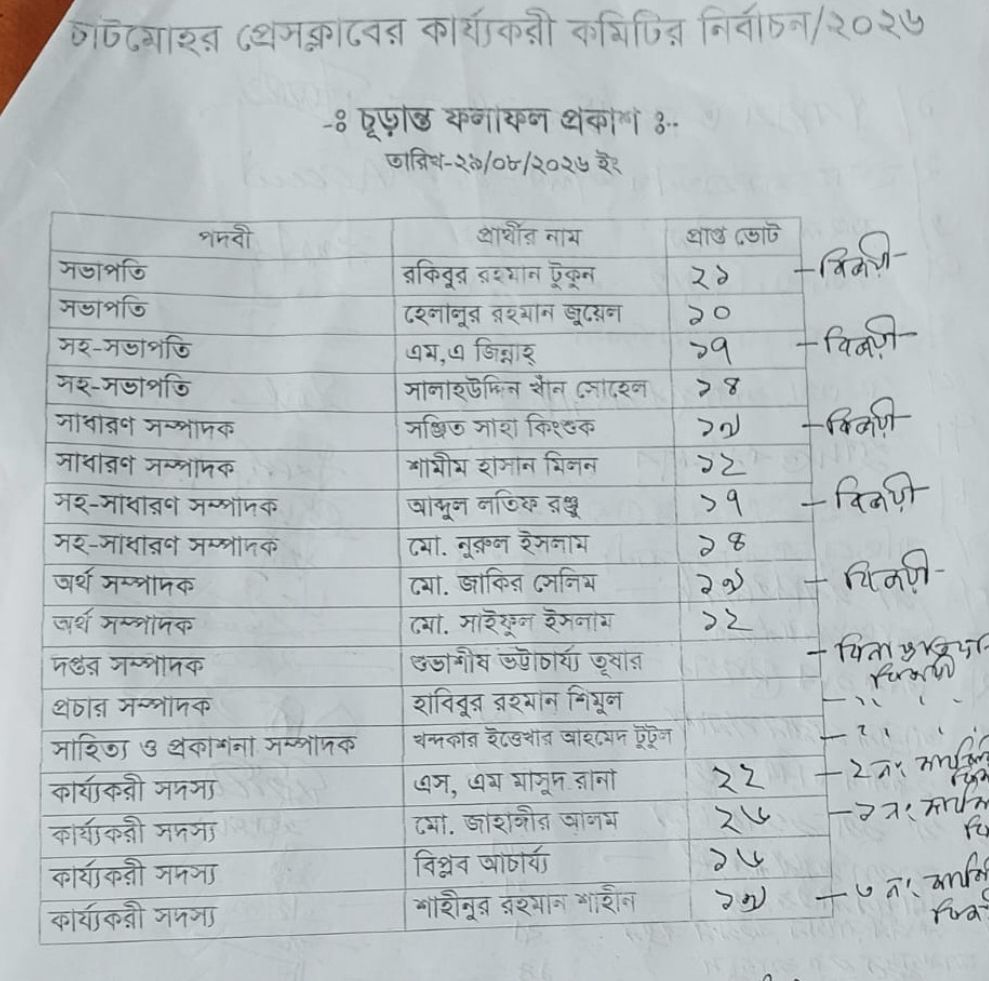 চাটমোহর প্রেসক্লাবের কার্য্যকরী কমিটির নির্বাচন/২০২৬
-ঃ চূড়ান্ত ফলাফল প্রকাশ ঃ-
তারিখ-২৯/০৮/২০২৬ ইং
পদবী প্রার্থীর নাম প্রাপ্ত ভোট
সভাপতি রকিবুর রহমান টুকুন ২১ - বিজয়ী
সভাপতি হেলালুর রহমান জুয়েল ১০
সহ-সভাপতি এম,এ জিন্নাহ্ ১৭ - বিজয়ী
সহ-সভাপতি সালাহউদ্দিন খাঁন সোহেল ১৪
সাধারণ সম্পাদক সঞ্জিত সাহা কিংশুক ১৯ - বিজয়ী
সাধারণ সম্পাদক শামীম হাসান মিলন ১২
সহ-সাধারণ সম্পাদক আব্দুল লতিফ রঞ্জু ১৭ - বিজয়ী
সহ-সাধারণ সম্পাদক মো. নূরুল ইসলাম ১৪
অর্থ সম্পাদক মো. জাকির সেলিম ১৯ - বিজয়ী
অর্থ সম্পাদক মো. সাইফুল ইসলাম ১২
দপ্তর সম্পাদক শুভাশীষ ভট্টাচার্য্য তুষার - বিনা
বিজয়ী
প্রচার সম্পাদক হাবিবুর রহমান শিমুল - ,, ,,
সাহিত্য ও প্রকাশনা সম্পাদক খন্দকার ইত্তেখার আহমেদ টুটুল - ,, ,,
কার্য্যকরী সদস্য এস, এম মাসুদ রানা ২২ - ২নং
কার্য্যকরী সদস্য মো. জাহাঙ্গীর আলম ২৬ - ১নং
কার্য্যকরী সদস্য বিপ্লব আচার্য্য ১৬
কার্য্যকরী সদস্য শাহীনুর রহমান শাহীন ১৯ - ৩নং